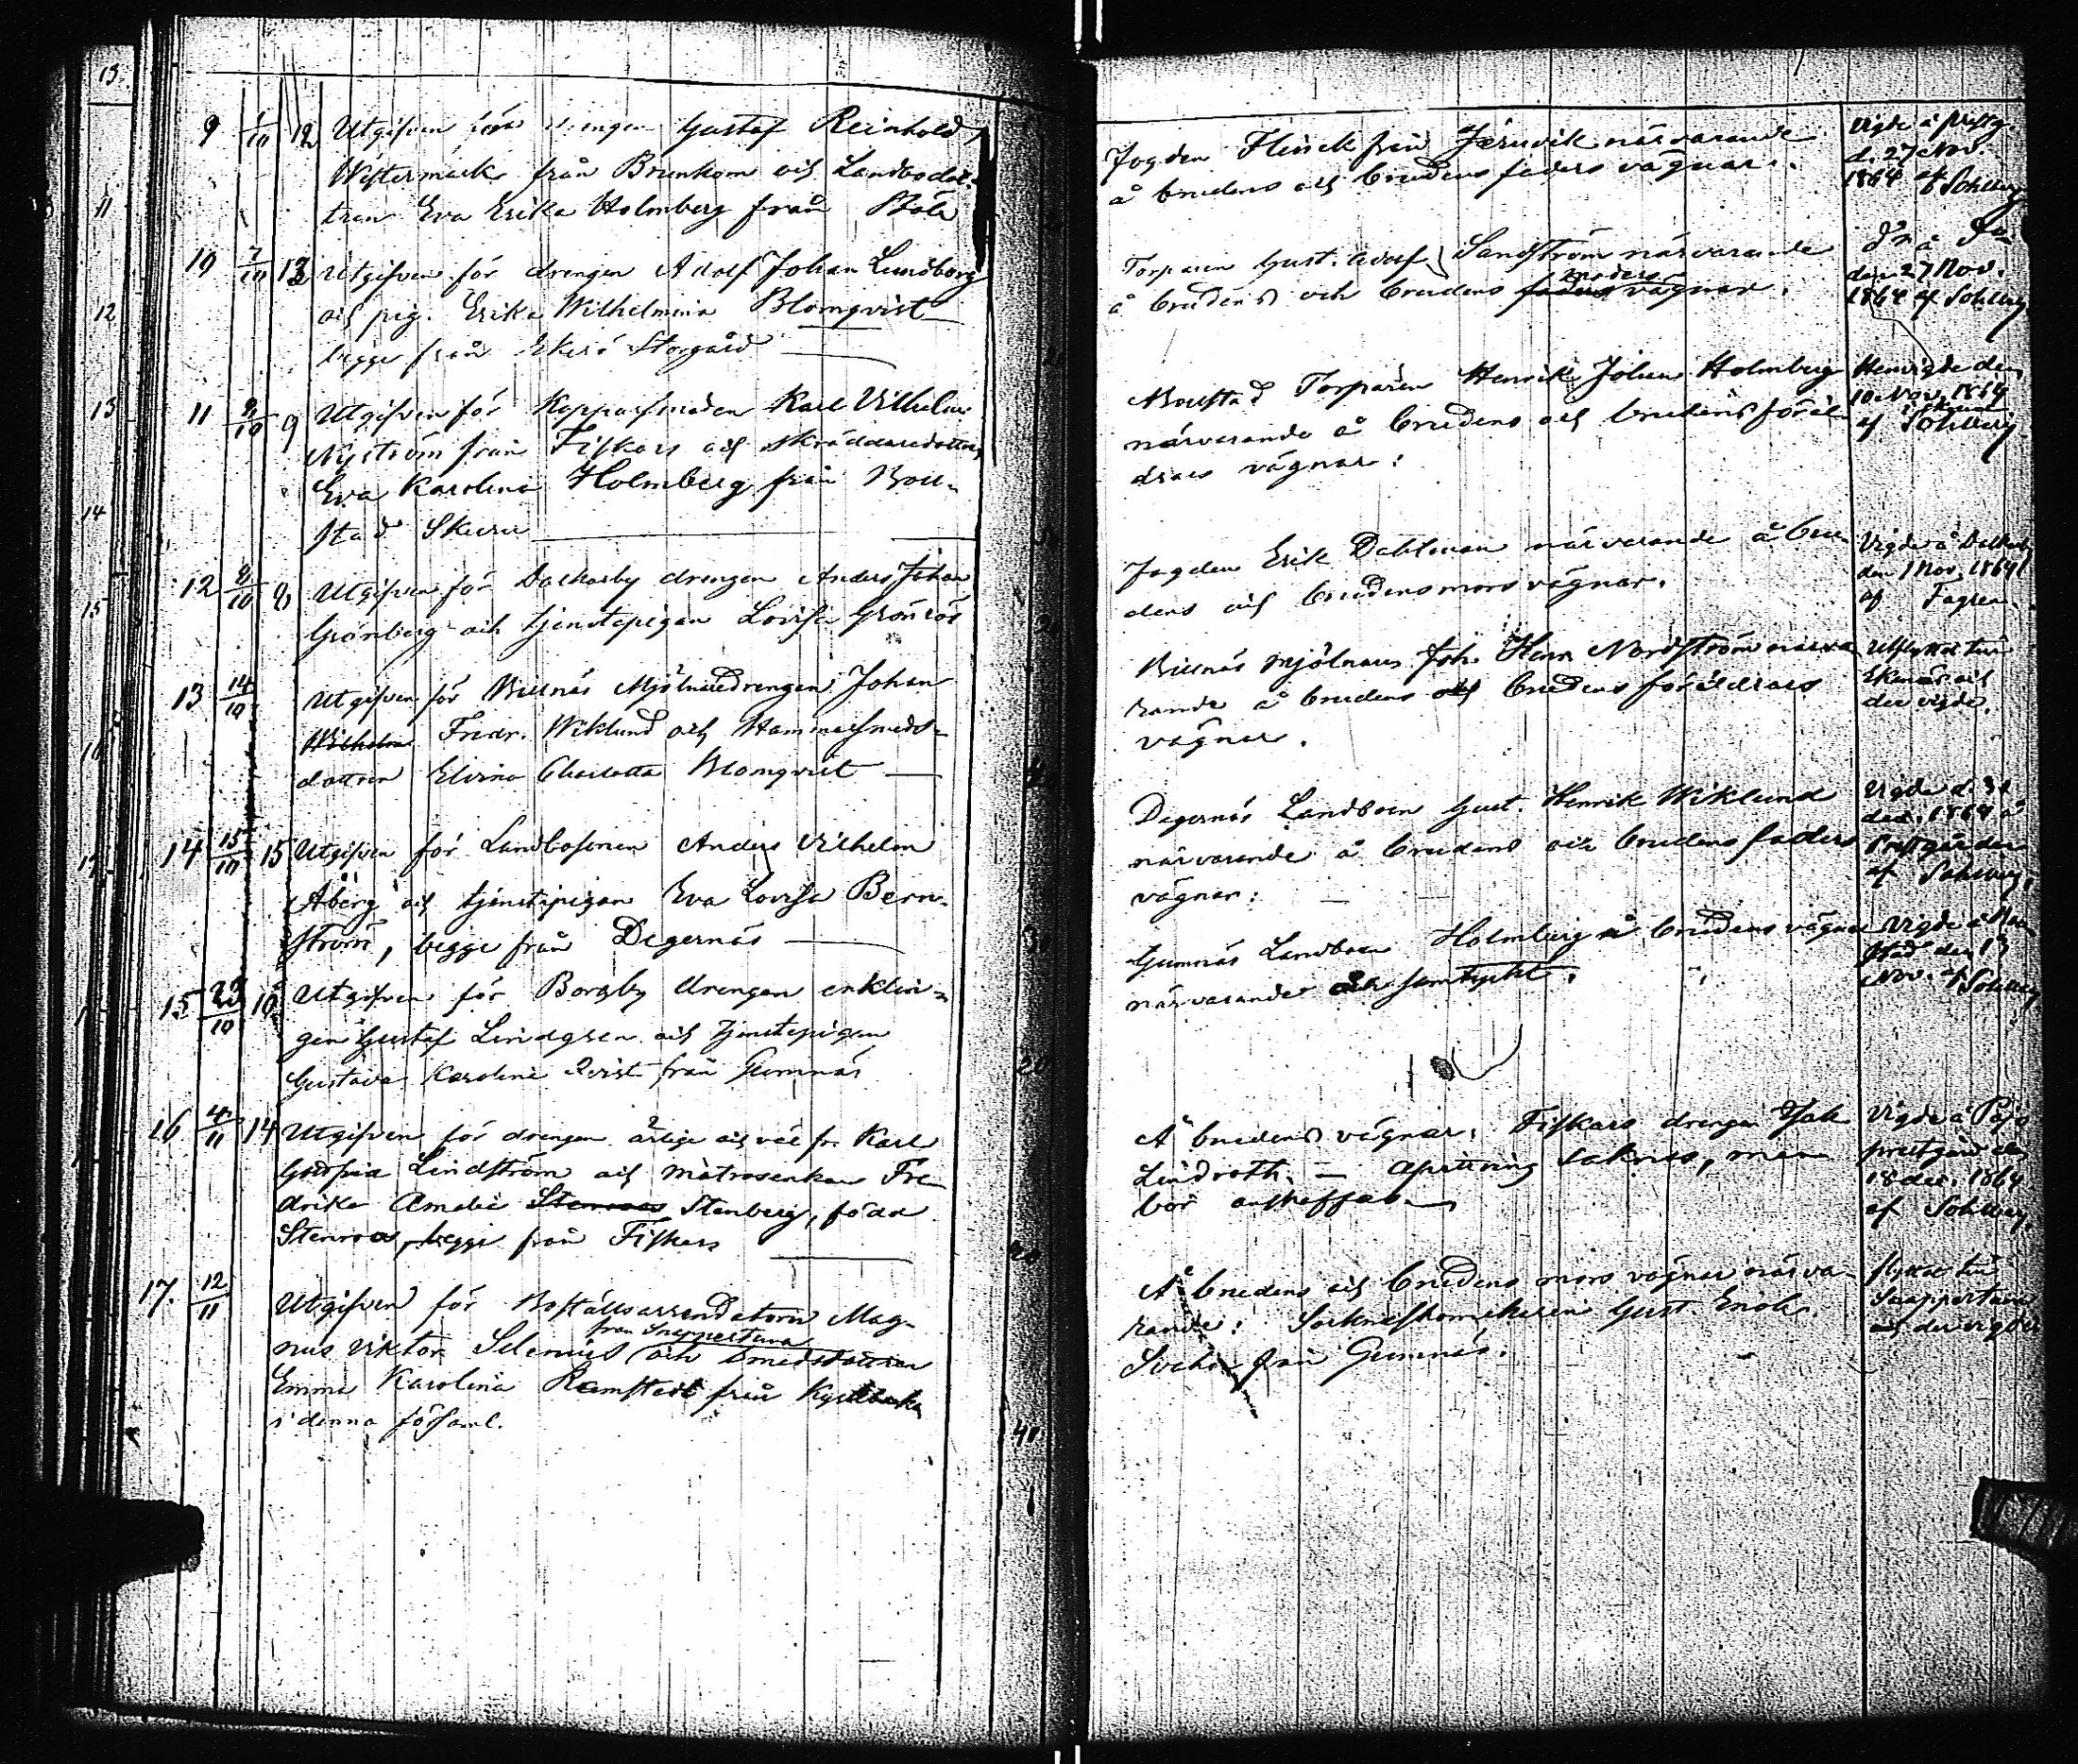 9 1/10 12 Utgifven för drengen Gustaf Reinhold
Westermark från Brunkom och Landbodot-
tren Eva Erika Holmberg från Böle
10 7/10 13 Utgifven för drengen Adolf Johan Lundborg
och pig. Erika Wilhelmina Blomqvist
begge från Ekerö Storgård
11 9/10 9 Utgifven för Kopparsmeden Karl Vilhelm
Nyström från Fiskars och skräddaredottren
Eva Karolina Holmberg från Bou-
stad Skuru
12 9/10 8 Utgifven för Dalkarby drengen Anders Johan
Grönberg och tjenstepigan Lovisa Grönroos
13 14/10 Utgifven för Billnäs Mjölnaredrengen Johan
Wilhelm Fredr. Wiklund och Hammarsmeds-
dottren Elvina Charlotta Blomqvist
14 15/10 15 Utgifven för Landbosonen Anders Vilhelm
Åberg och tjenstepigan Eva Lovisa Bern-
ström, begge från Degernäs
15 22/10 10 Utgifven för Borgby drengen enklin-
gen Gustaf Lindgren och tjenstepigan
Gustava Karolina Qvist från Gumnäs
16 4/11 14 Utgifven för drengen ärlige och väl fr. Karl
Lindström och matrosenkan Fre-
drika Amalia Stenroos Stenberg, född
Stenroos, begge från Fiskars
17. 12/11 Utgifven för Boställsarrendatorn Mag-
från Snappertuna
nus Viktor Selenius och Smedsdottren
Emma Karolina Ramstedt från Kyrkbacka
i denna församl.
Fogden Flinck från Jernvik närvarande
å brudens och brudens faders vägnar.
Torparen Gust. Adolf Sandström närvarande
moders
å brudens och brudens faders vägnar.
Boustad Torparen Henrik Johan Holmberg
närvarande å brudens och brudens föräl-
drars vägnar.
Fogden Erik Dahlman närvarande å bru-
dens och brudens mors vägnar.
Billnäs Mjölnaren Joh. Henr. Nordström närva-
rande å brudens och brudens föräldrars
vägnar.
Degernäs Landboen Gust. Henrik Wiklund
närvarande å brudens och brudens faders
vägnar.
Gumnäs Landboen Holmberg å brudens vägnar
närvarande och samtyckt.
Å brudens vägnar. Fiskars drengen Jak
Lindroth. — saknas, men
bör anskaffas
Å brudens och brudens mors vägnar närva-
rande: Gust. Enok
från Gumnäs.
Vigde å prestg.
d. 27 Nov.
1864 af Sohlberg
d:o å
den 27 Nov.
1864 af Sohlberg
Hemvigde den
10 Nov. 1864
i Skuru
af Sohlberg
Vigde å Dalkarby
den 1 Nov. 1864
af Fagren.
Utflyttat till
Ekenäs och
der vigde.
Vigde d. 31
dec. 1864 å
Prestgården
af Sohlberg.
Vigde å Bou-
stad den 13
Nov. af Sohlberg
Vigde å Pojo
prestgård den
18 dec. 1864
af Sohlberg.
flyttat till
Snappertuna
och der vigde